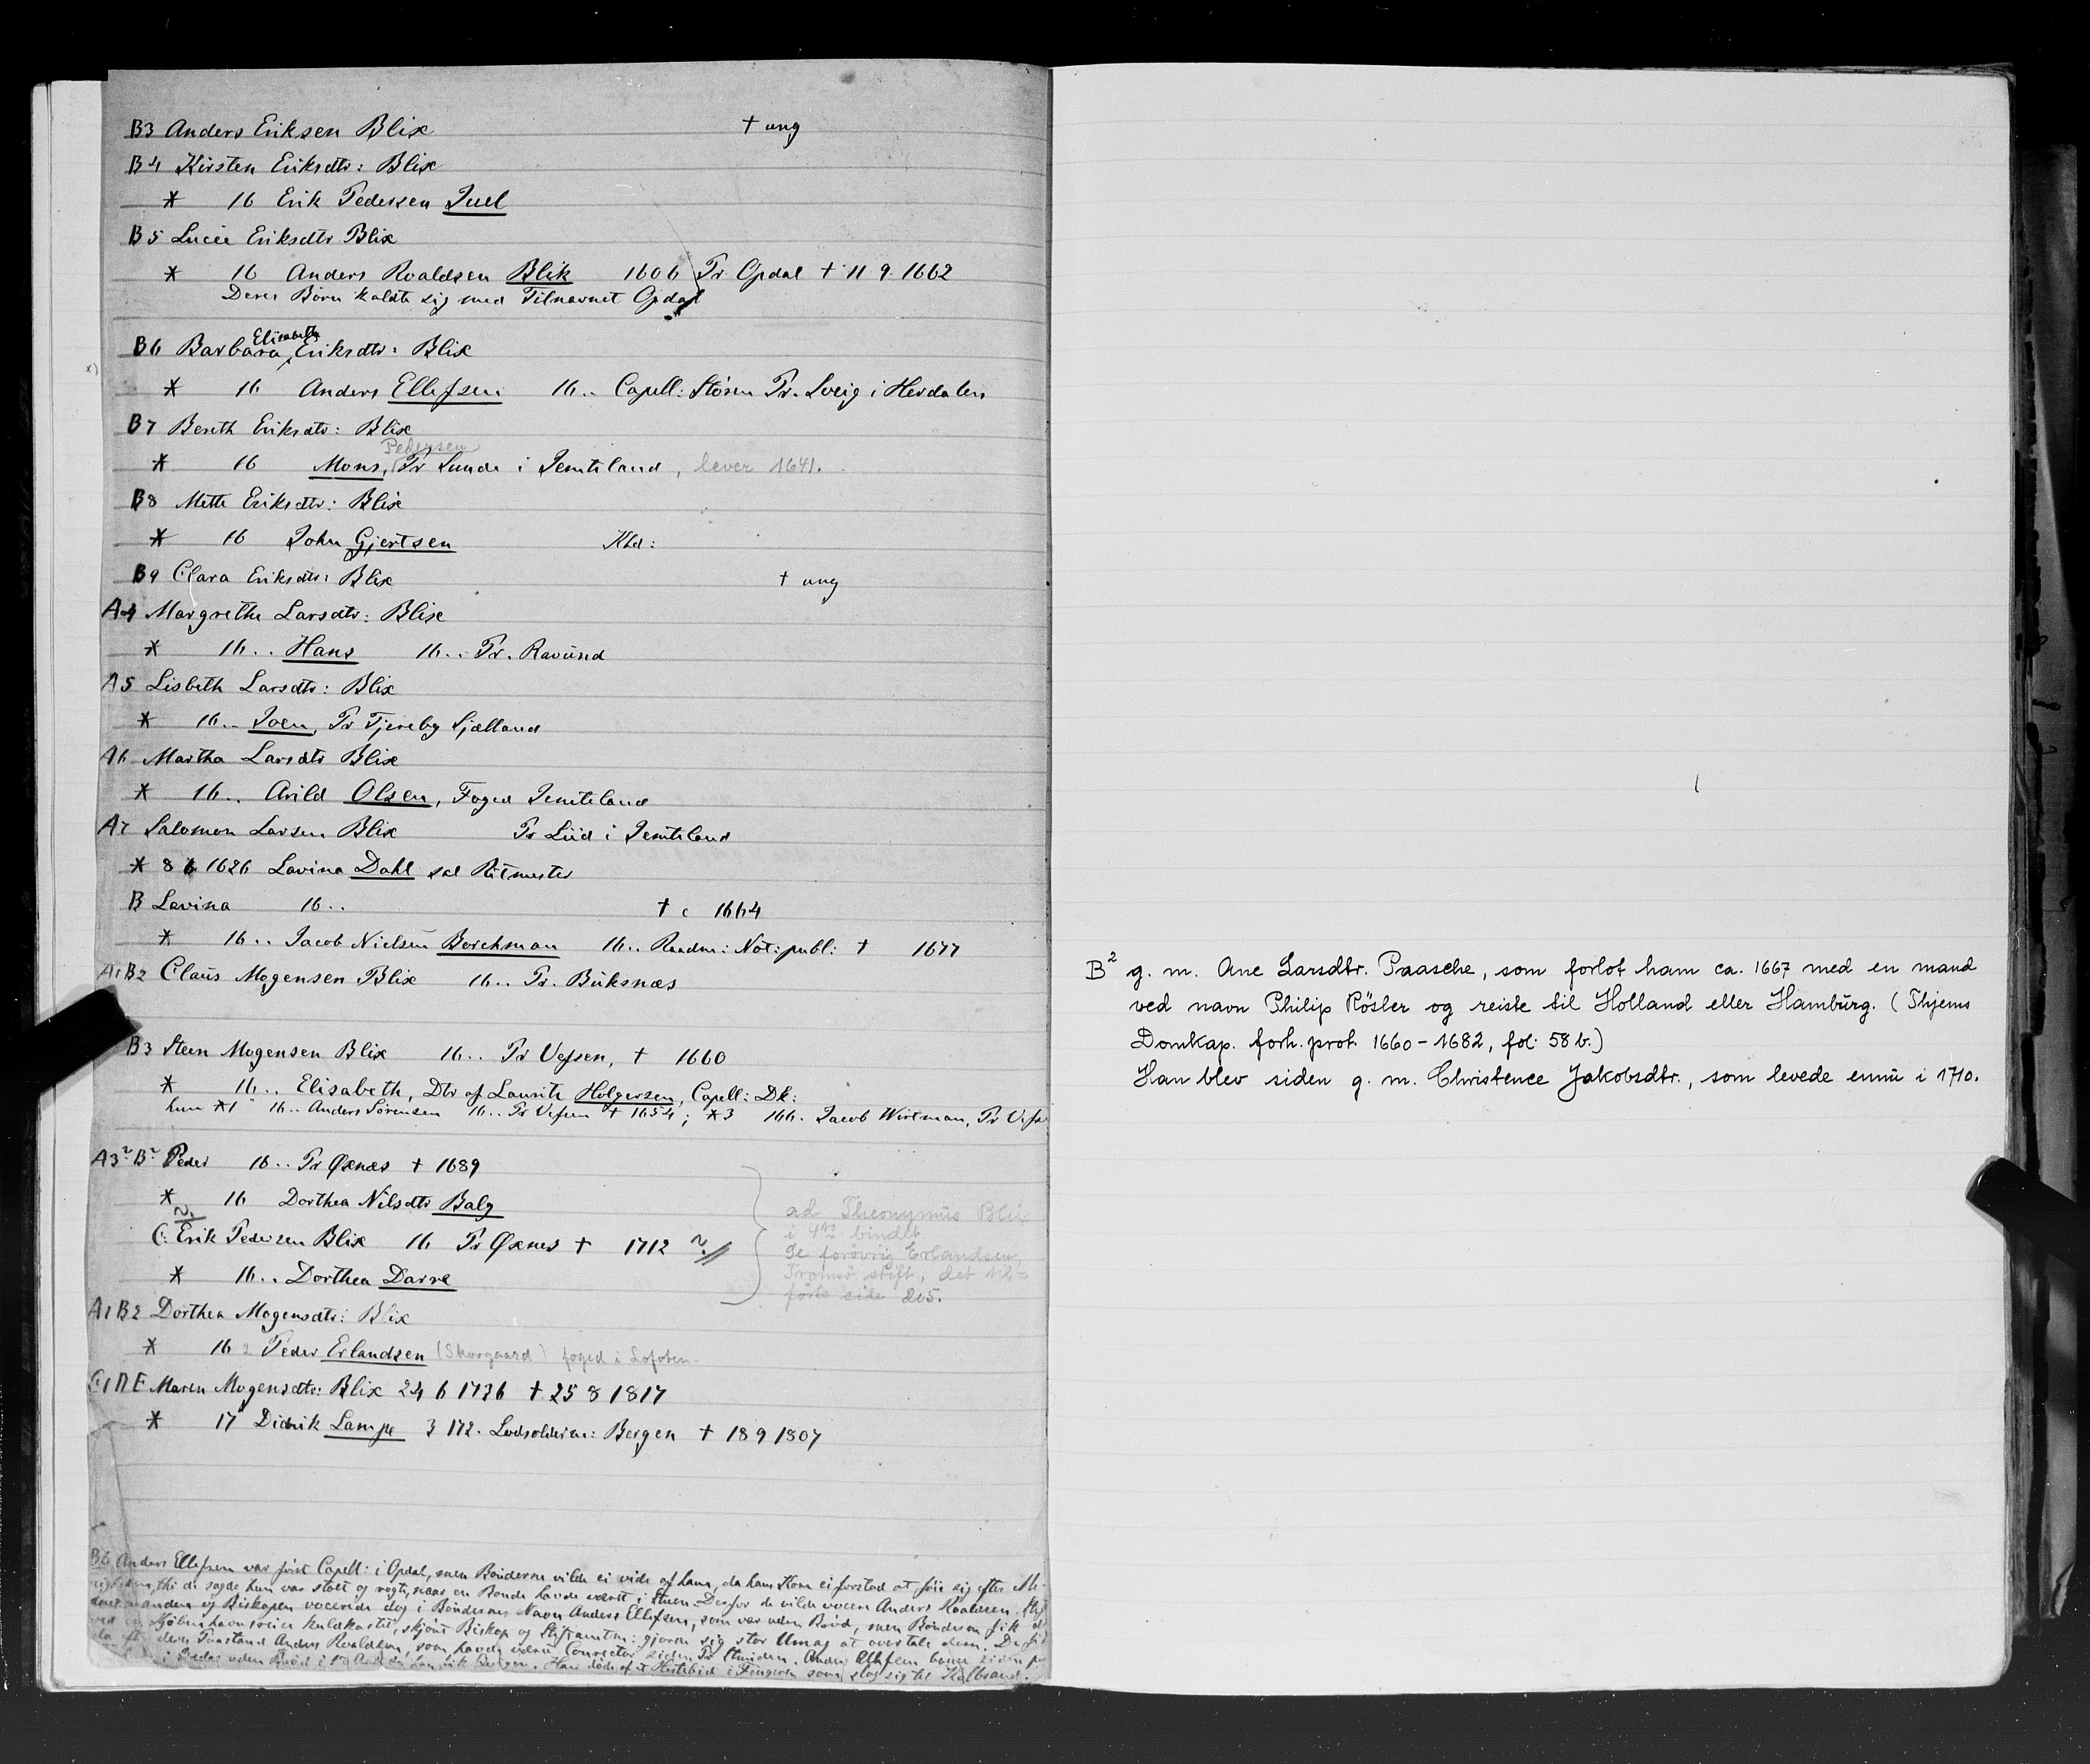 B3 Anders Eriksen Blix † ung
B4 Kirsten Eriksdtr: Blix
* 16 Erik Pedersen Juel
B5 Lucie Eriksdtr Blix
* 16 Anders Roaldsen Blik 1606 Pr Opdal † 11 9 1662
Deres Børn kaldte sig med Tilnavnet Opdal
B6 Barbara Elisabeth Eriksdtr: Blix
x)
* 16 Anders Ellefsen 16.. Capell: Støren Pr. Sveig i Herdalen
B7 Bereth Eriksdtr: Blix
* 16 Mons, Pedersen Pr Sunde i Jemteland, lever 1641.
B8 Mette Eriksdtr: Blix
* 16 John Gjertsen Khd:
B9 Clara Eriksdtr: Blix † ung
A4 Margrethe Larsdtr: Blix
* 16.. Hans 16.. Pr. Ravund
A5 Lisbeth Larsdtr: Blix
* 16.. Joen, Pr Tjereby Sjælland
A6 Martha Larsdtr Blix
* 16.. Arild Olsen, Foged Jemteland
A7 Salomon Larsen Blix Pr Liid i Jemteland
* 8 6 1626 Lavina Dahl sal Ritmester
B Lavina 16.. † c 1664
* 16.. Jacob Nielsen Borchman 16.. Raadm: Not: publ: † 1677
A1B2 Claus Mogensen Blix 16.. Pr. Buksnæs
B3 Steen Mogensen Blix 16.. Pr Vefsen, † 1660
* 16.. Elisabeth, Dtr af Laurits Holgersen, Capell: Dk:
hun *1 16.. Anders Sørensen 16.. Pr Vefsen † 1654; *3 166. Jacob Wirtman, Pr Vefs
A3? B? Peder 16.. Pr Øxnæs † 1689
* 16 Dorthea Nilsdtr Balg
C: Erik Pedersen Blix 16 Pr Øxnes † 1712 ?//
* 16.. Dorthea Darre
ad Theonymus Blix
i 4to bindet
Se forövrig Erlandsen,
Tromsö stift, det til-
förte side 205.
A1B2 Dorthea Mogensdtr: Blix
* 16 2 Peder Erlandsen (Skovgaard) foged i Lofoten.
Maren Mogensdtr: Blix 24 6 1736 † 25 8 1817
* 17 Didrik Lampe 3 172. Lodsolderm: Bergen † 18 9 1807
B6 Anders Ellefsen var først Capell: i Opdal, men Bønderne vilde ei vide af ham, da hans Kone ei forstod at føie sig efter
thi de sagde hun var stolt og vogti, naar en Bonde havde været i Stuen. Derfor de vilde vocere Anders Roaldsen.
og Biskopen vocerede dog i Bøndernes Navn Anders Ellefsen, som var uden Brød, men Bønderne fik
Kjøbenhavns reise kuldkastet, skjønt Biskop og Stiftamtm: gjorde sig stor Umag at overtale dem. De
deres Paastand Anders Roaldsen, som havde været Conrector siden Pr Stueiden. Anders Ellefsen boede siden
i Opdal uden Brød i Han døde af et Hestebid i Fingeren som slog sig til Koldbrand.
B2 g. m. Ane Larsdtr. Paasche, som forlot ham ca. 1667 med en mand
ved navn Philip Rösler og reiste til Holland eller Hamburg. (Thjems
Domkap. forh. prot. 1660-1682, fol. 58 b.)
Han blev siden g. m. Christence Jakobsdtr., som levede ennu i 1710.